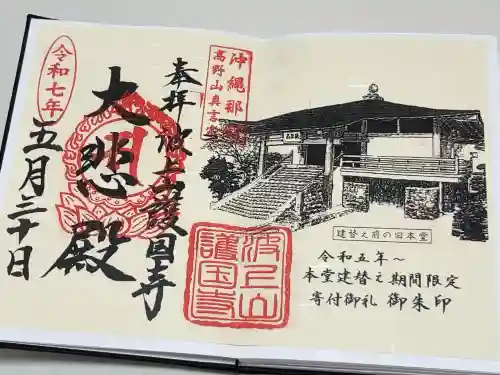 沖縄那覇
高野山真言宗
奉拝 波上山護国寺
大悲殿
令和七年
五月三十日
波上山
護国寺
建替え前の旧本堂
令和五年~
本堂建替え期間限定
寄付御礼 御朱印